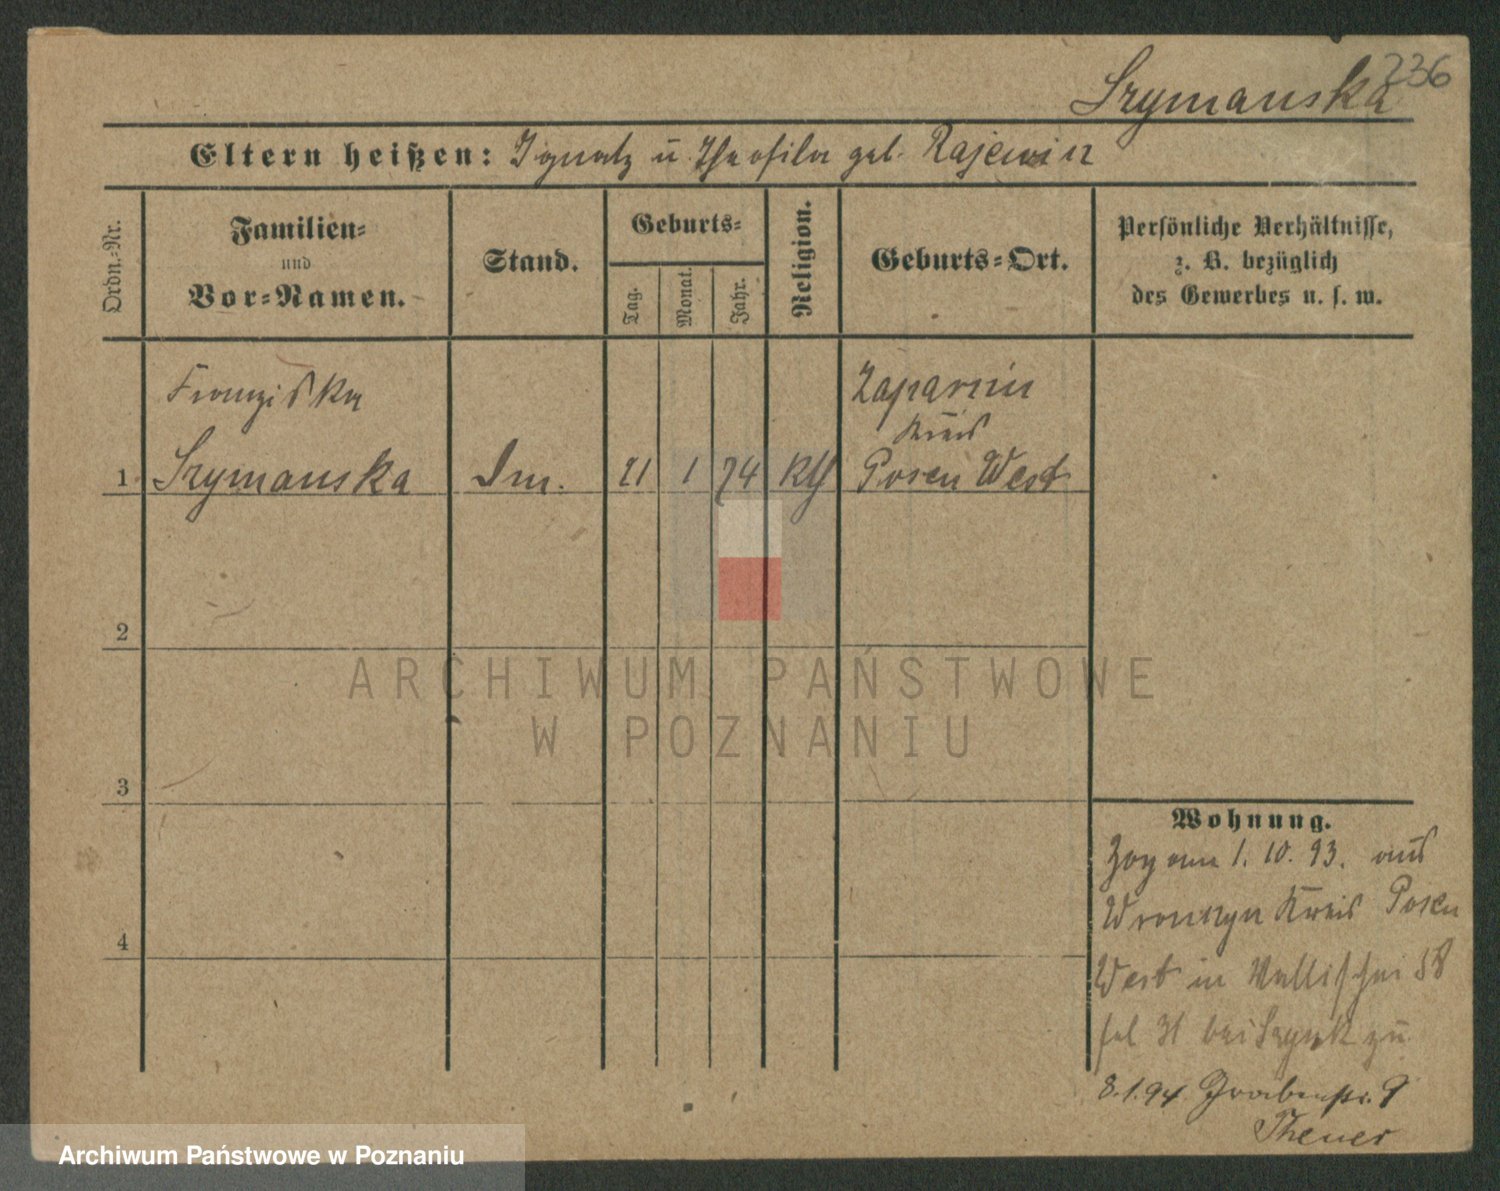 236
Szymanska
Eltern heißen: Ignatz u. Theofila geb. Rajewicz
Ordn.-Nr.
Familien-
und
Vor-Namen.
Stand.
Geburts-
Tag.
Monat.
Jahr.
Religion.
Geburts-Ort.
Persönliche Verhältnisse,
z. B. bezüglich
des Gewerbes u. s. w.
Franziska
1 Szymanska
21 1 74 Kth
Kreis
Posen West
2
3
4
Wohnung.
Zog am 1. 10. 93. aus
Wronczyn Kreis Posen
West in Wallischei 58
bei zu
8.1.94. Grabenstr. 9
Theuer
ARCHIWUM PAŃSTWOWE
W POZNANIU
Archiwum Państwowe w Poznaniu